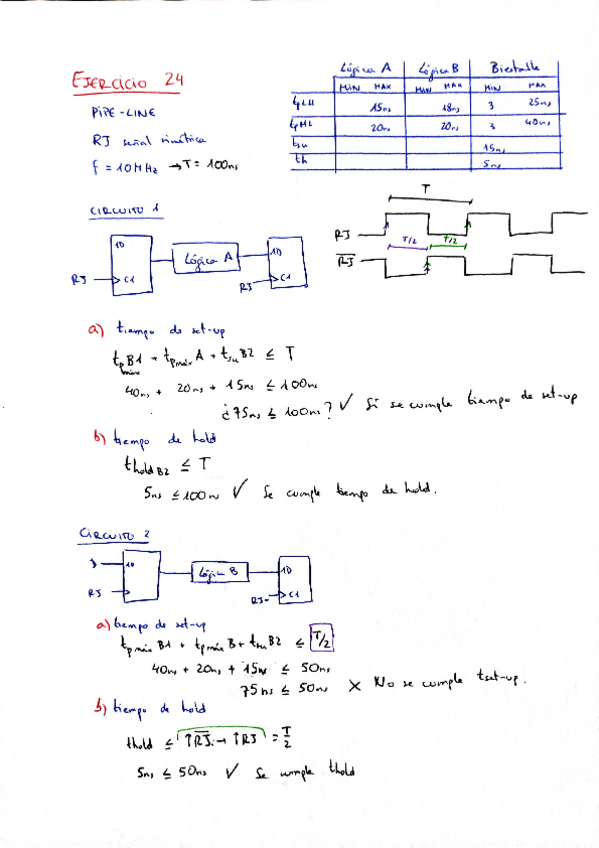 EJERCICIO 24
PIPE-LINE
RJ señal simétrica
f = 10MHz → T = 100ns
Lógica A Lógica B Biestable
MIN MAX MIN MAX MIN MAX
tpLH 15ns 18ns 3 25ns
tpHL 20ns 20ns 3 40ns
tsu 15ns
th 5ns
T
RJ T/2 T/2
RJ
CIRCUITO 1
1D Lógica A 1D
RJ C1 RJ C1
a) tiempo de set-up
tpB1 + tpmáx A + tsu B2 ≤ T
máx
40ns + 20ns + 15ns ≤ 100ns
¿75ns ≤ 100ns? ✓ Sí se cumple tiempo de set-up
b) tiempo de hold
thold B2 ≤ T
5ns ≤ 100ns ✓ Se cumple tiempo de hold.
CIRCUITO 2
1D Lógica B 1D
RJ RJ C1
a) tiempo de set-up
tpmáx B1 + tpmáx B + tsu B2 ≤ T/2
40ns + 20ns + 15ns ≤ 50ns
75ns ≤ 50ns × No se cumple tset-up.
b) tiempo de hold
thold ≤ ↑RJ → ↑RJ = T/2
5ns ≤ 50ns ✓ Se cumple thold